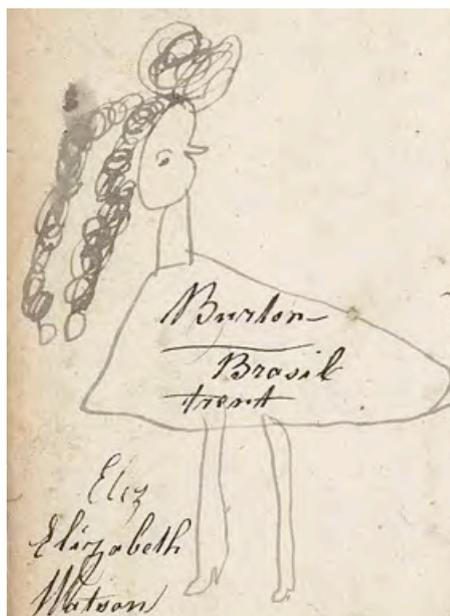 Burton
Brasil
trent
Eliz
Elizabeth
Watson